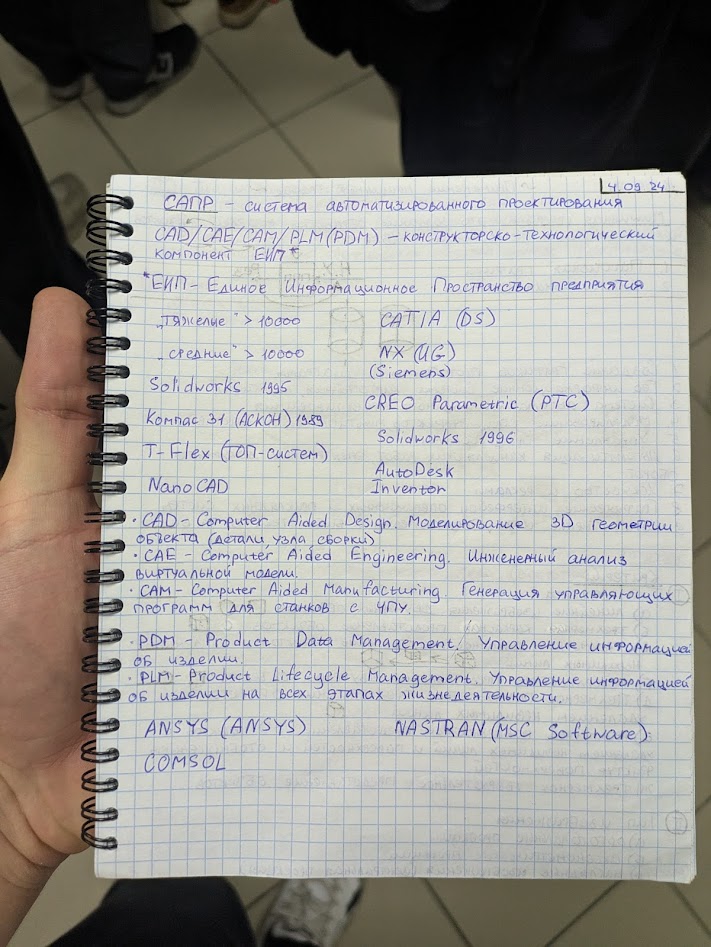 4.09 24
САПР – система автоматизированного проектирования
CAD/CAE/CAM/PLM(PDM) – конструкторско-технологический
компонент ЕИП*
*ЕИП – Единое Информационное Пространство предприятия
„тяжелые" > 10000 CATIA (DS)
„средние" > 10000 NX (UG)
(Siemens)
Solidworks 1995
CREO Parametric (PTC)
Компас 31 (АСКОН) 1989
Solidworks 1996
T-Flex (ТОП-систем)
AutoDesk
NanoCAD Inventor
• CAD – Computer Aided Design. Моделирование 3D геометрии
объекта (детали узла сборки)
• CAE – Computer Aided Engineering. Инжененый анализ
виртуальной модели.
• CAM – Computer Aided Manufacturing Генерация управляющих
программ для станков с ЧПУ.
• PDM – Product Data Management. Управление информацией
об изделии.
• PLM – Product Lifecycle Management. Управление информацией
об изделии на всех этапах жизнедеятельности.
ANSYS (ANSYS) NASTRAN (MSC Software)
COMSOL